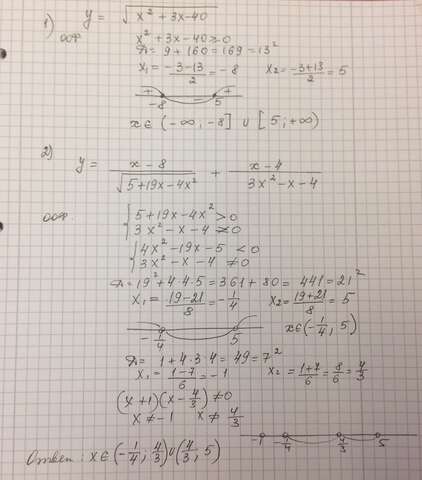 1) y = √(x² + 3x - 40)
ООФ x² + 3x - 40 ≥ 0
D = 9 + 160 = 169 = 13²
x₁ = (-3-13)/2 = -8 x₂ = (-3+13)/2 = 5
+ -8 - 5 +
x ∈ (-∞; -8] ∪ [5; +∞)
2) y = (x-8)/√(5+19x-4x²) + (x-4)/(3x²-x-4)
ООФ. { 5+19x-4x² > 0
3x² - x - 4 ≠ 0
{ 4x² - 19x - 5 < 0
3x² - x - 4 ≠ 0
D = 19² + 4·4·5 = 361 + 80 = 441 = 21²
x₁ = (19-21)/8 = -1/4 x₂ = (19+21)/8 = 5
-1/4 5 x ∈ (-1/4, 5)
D = 1 + 4·3·4 = 49 = 7²
x₁ = (1-7)/6 = -1 x₂ = (1+7)/6 = 8/6 = 4/3
(x+1)(x - 4/3) ≠ 0
x ≠ -1 x ≠ 4/3
-1 -1/4 4/3 5
Ответ: x ∈ (-1/4; 4/3) ∪ (4/3; 5)